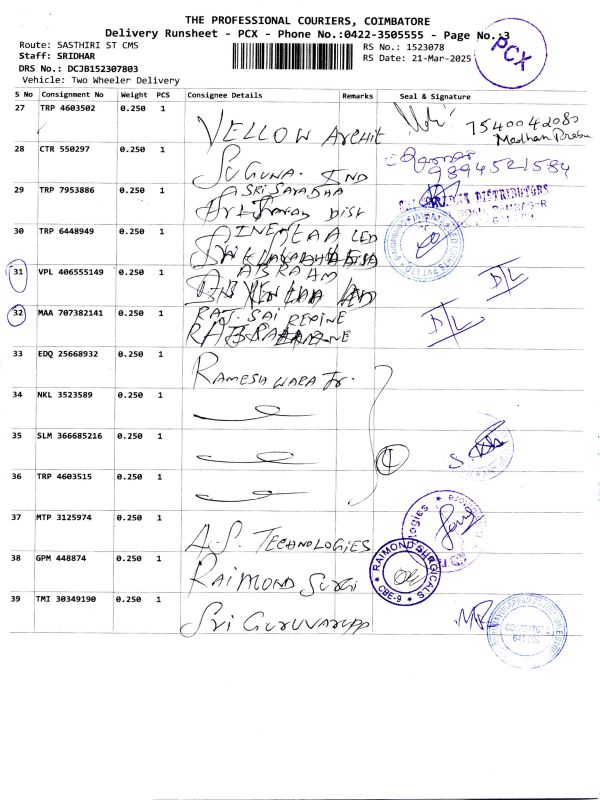 THE PROFESSIONAL COURIERS, COIMBATORE
Delivery Runsheet - PCX - Phone No.:0422-3505555 - Page No.:3
PCX
Route: SASTHIRI ST CMS
RS No.: 1523078
Staff: SRIDHAR
RS Date: 21-Mar-2025
DRS No.: DCJB152307803
Vehicle: Two Wheeler Delivery
S No Consignment No Weight PCS Consignee Details Remarks Seal & Signature
27 TRP 4603502 0.250 1 VELLOW Archit 7540042080
Madhan Prabu
28 CTR 550297 0.250 1 SUGUNA. IND 9894521584
29 TRP 7953886 0.250 1 A SRI SARADHA
Dist DISTRIBUTORS
30 TRP 6448949 0.250 1 AINENTAA LED
31 VPL 406555149 0.250 1 ABRAHM D/L
32 MAA 707382141 0.250 1 RAJ. SAI REPINE D/L
33 EDQ 25668932 0.250 1 RAMESHWARA Tr.
34 NKL 3523589 0.250 1
35 SLM 366685216 0.250 1 4
36 TRP 4603515 0.250 1
37 MTP 3125974 0.250 1 A.S. TECHNOLOGIES
38 GPM 448874 0.250 1 RAIMOND Surgi RAIMOND SURGICALS CBE-9
39 TMI 30349190 0.250 1 Sri GURUVARUPP COIMBATORE